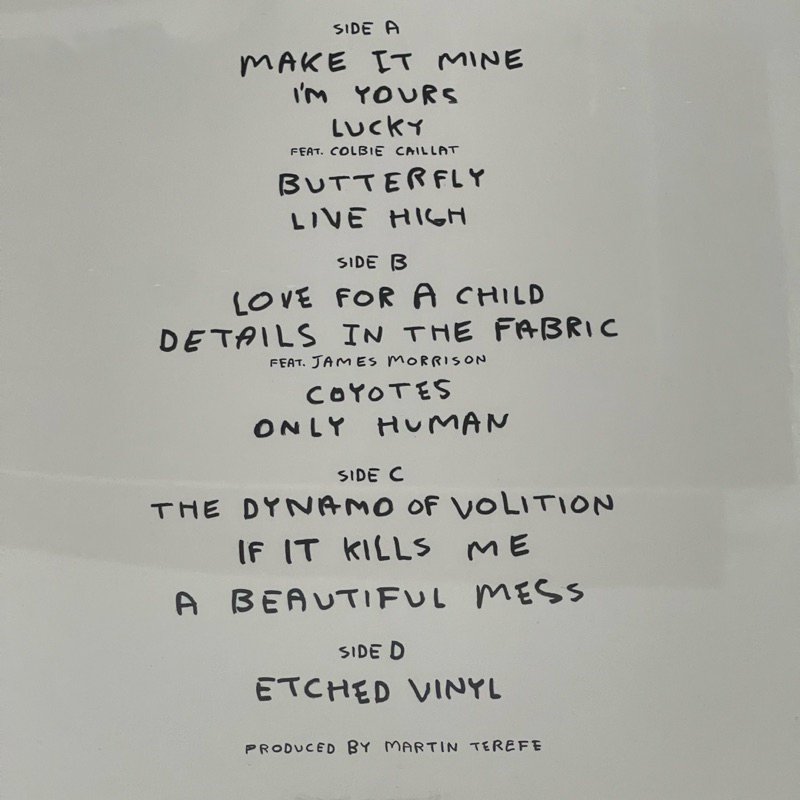 SIDE A
MAKE IT MINE
I'M YOURS
LUCKY
FEAT. COLBIE CAILLAT
BUTTERFLY
LIVE HIGH
SIDE B
LOVE FOR A CHILD
DETAILS IN THE FABRIC
FEAT. JAMES MORRISON
COYOTES
ONLY HUMAN
SIDE C
THE DYNAMO OF VOLITION
IF IT KILLS ME
A BEAUTIFUL MESS
SIDE D
ETCHED VINYL
PRODUCED BY MARTIN TEREFE